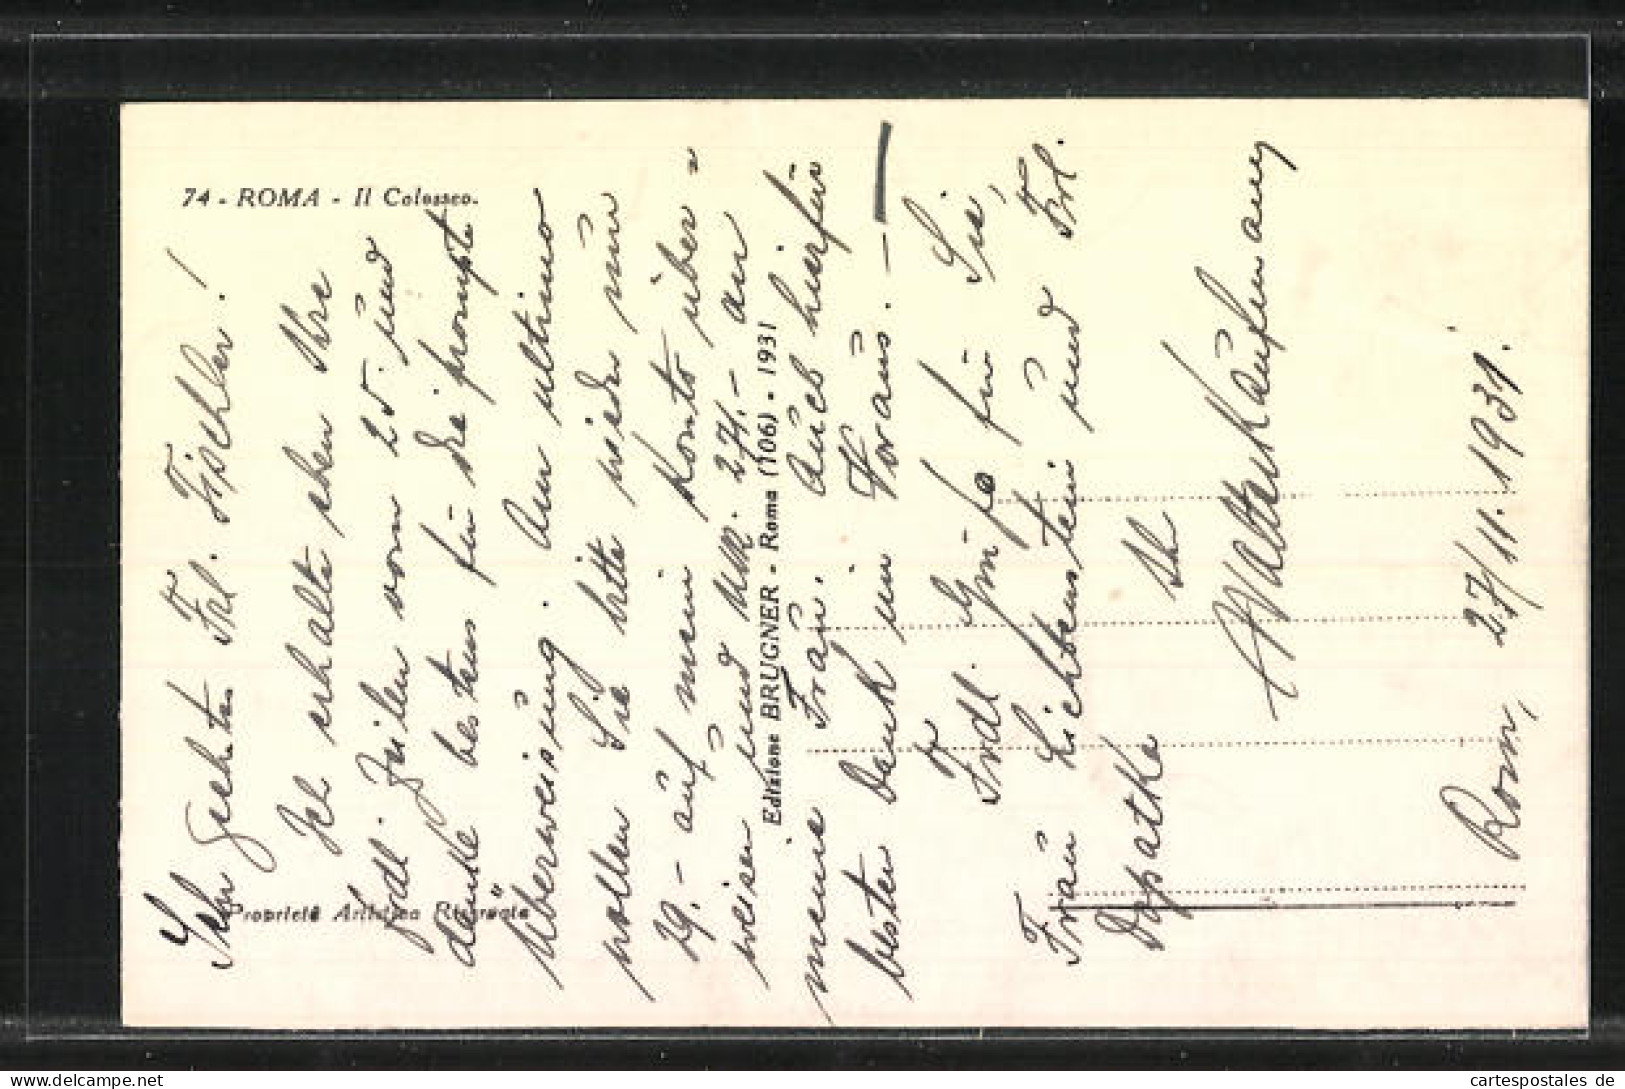 74 - ROMA - Il Colosseo.
Proprietà Artistica Riservata
Edizione BRUGNER - Roma (106) - 1931
Sehr geehrtes Frl. Fischler!
Ich erhalte eben Ihre
frdl. Zeilen vom 25. und
danke bestens für die prompte
Überweisung. Am ultimo
wollen Sie bitte wieder nur
29.- auf mein Konto über-
weisen und Mk. 271.- an
meine Frau. Auch hierfür
besten Dank im Voraus. —
Frdl. Grüße für Sie,
Frau Lichtenstein und Frl.
Dopatka Ih
Walter Kaufmann
Rom, 27/11.1931.
cartespostales de